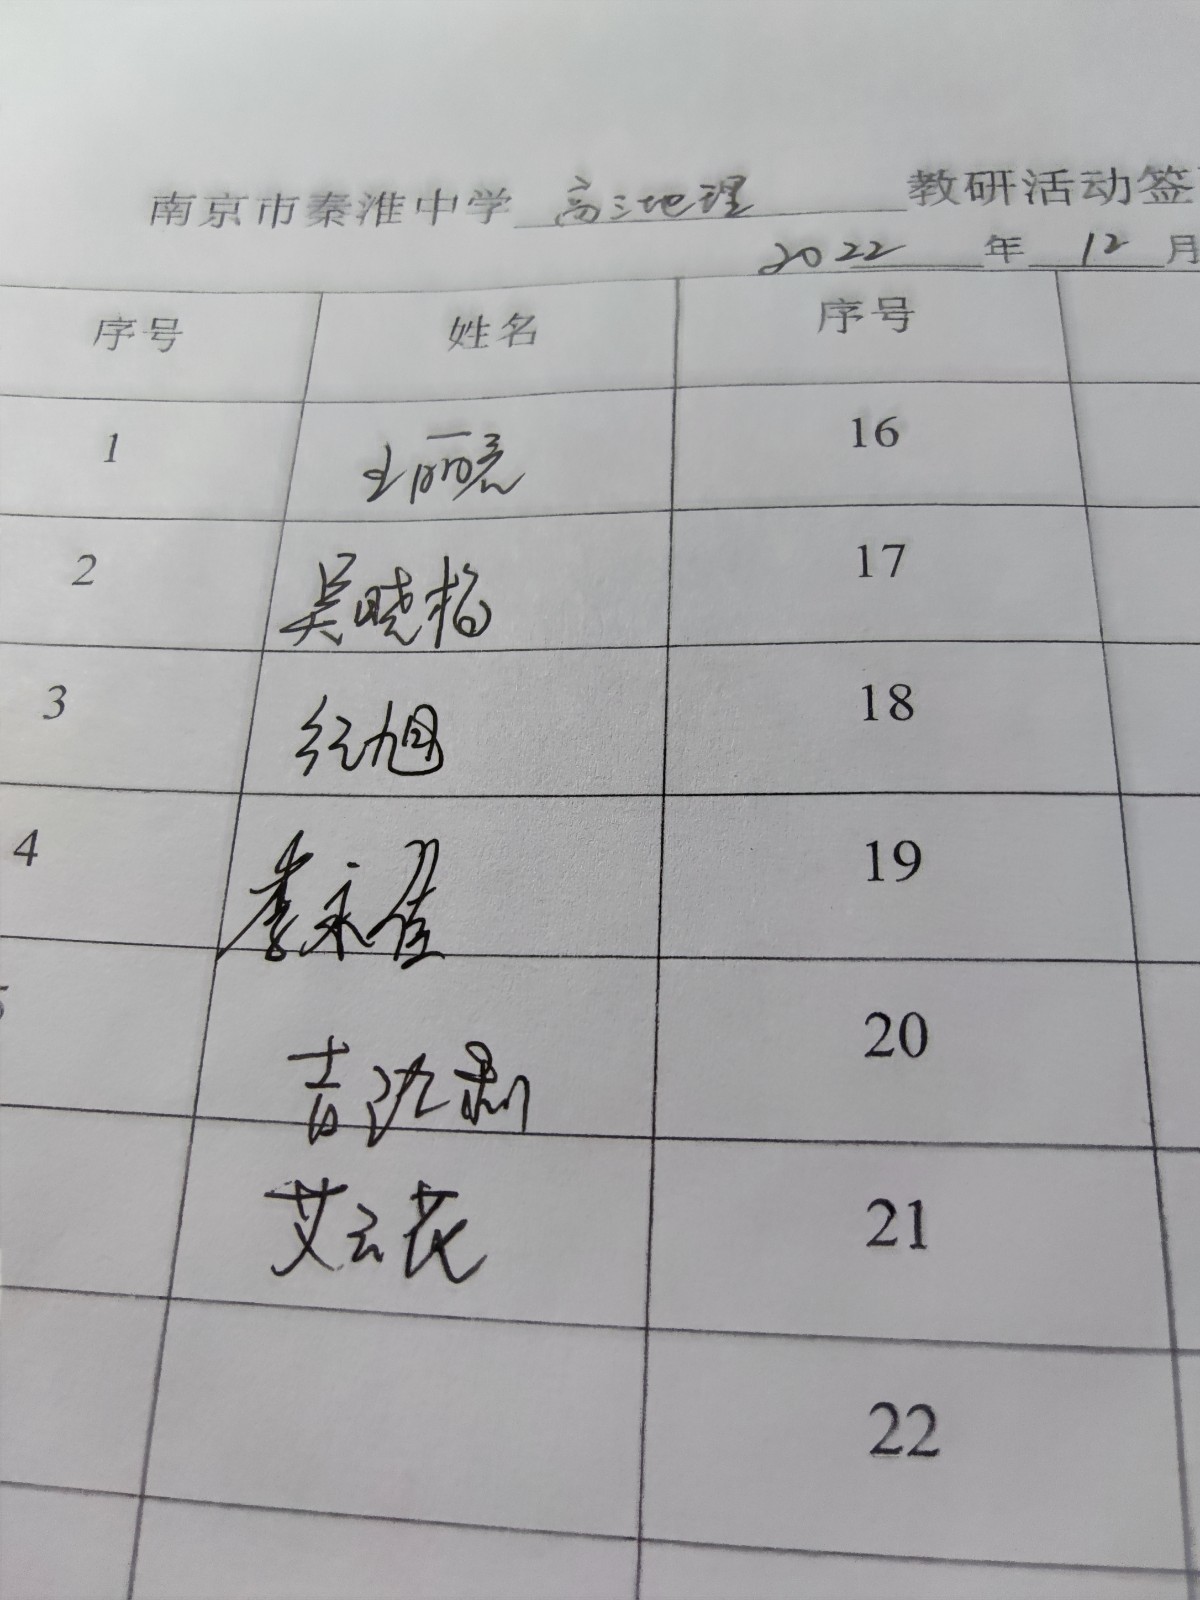 南京市秦淮中学 高三地理 教研活动签
2022 年 12 月
序号 姓名 序号
1 王丽亮 16
2 吴晓梅 17
3 红旭 18
4 李永佳 19
20
艾云花 21
22